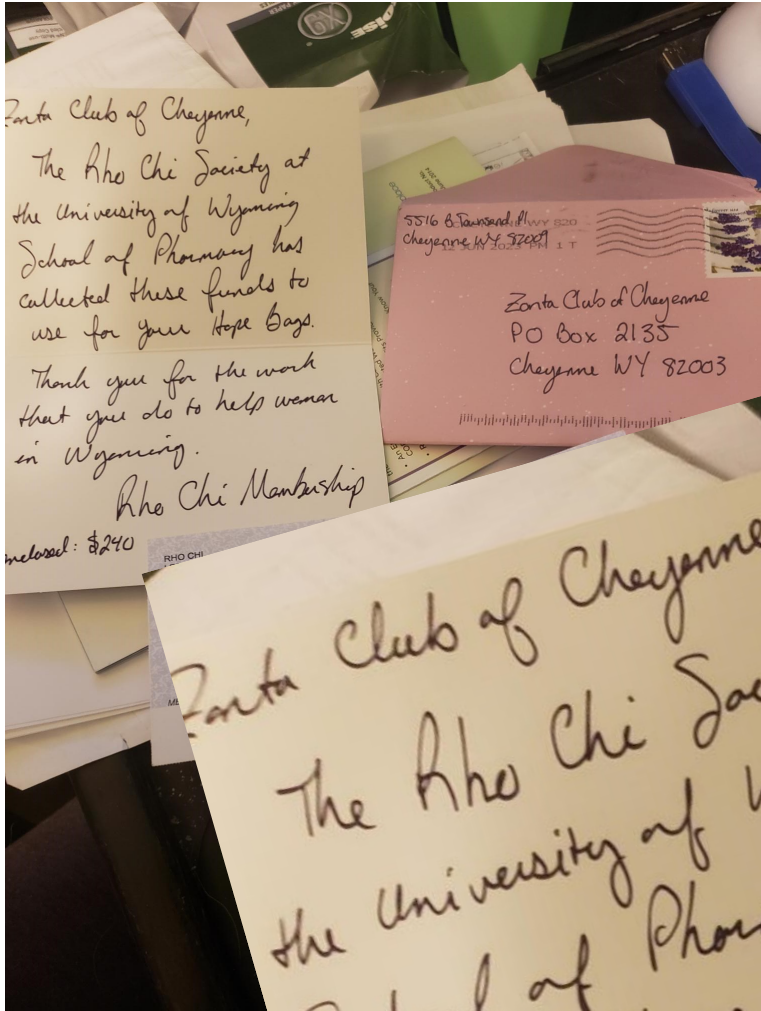 Zonta Club of Cheyenne,
The Rho Chi Society at
the University of Wyoming
School of Pharmacy has
collected these funds to
use for your Hope Bags.
Thank you for the work
that you do to help women
in Wyoming.
Rho Chi Membership
enclosed: $240
RHO CHI
5516 B Townsend Pl
Cheyenne WY 82009
WY 820
12 JUN 2023 PM 1 T
Zonta Club of Cheyenne
PO Box 2135
Cheyenne WY 82003
Zonta Club of Cheyenne
The Rho Chi Soc
the University of W
School of Phar